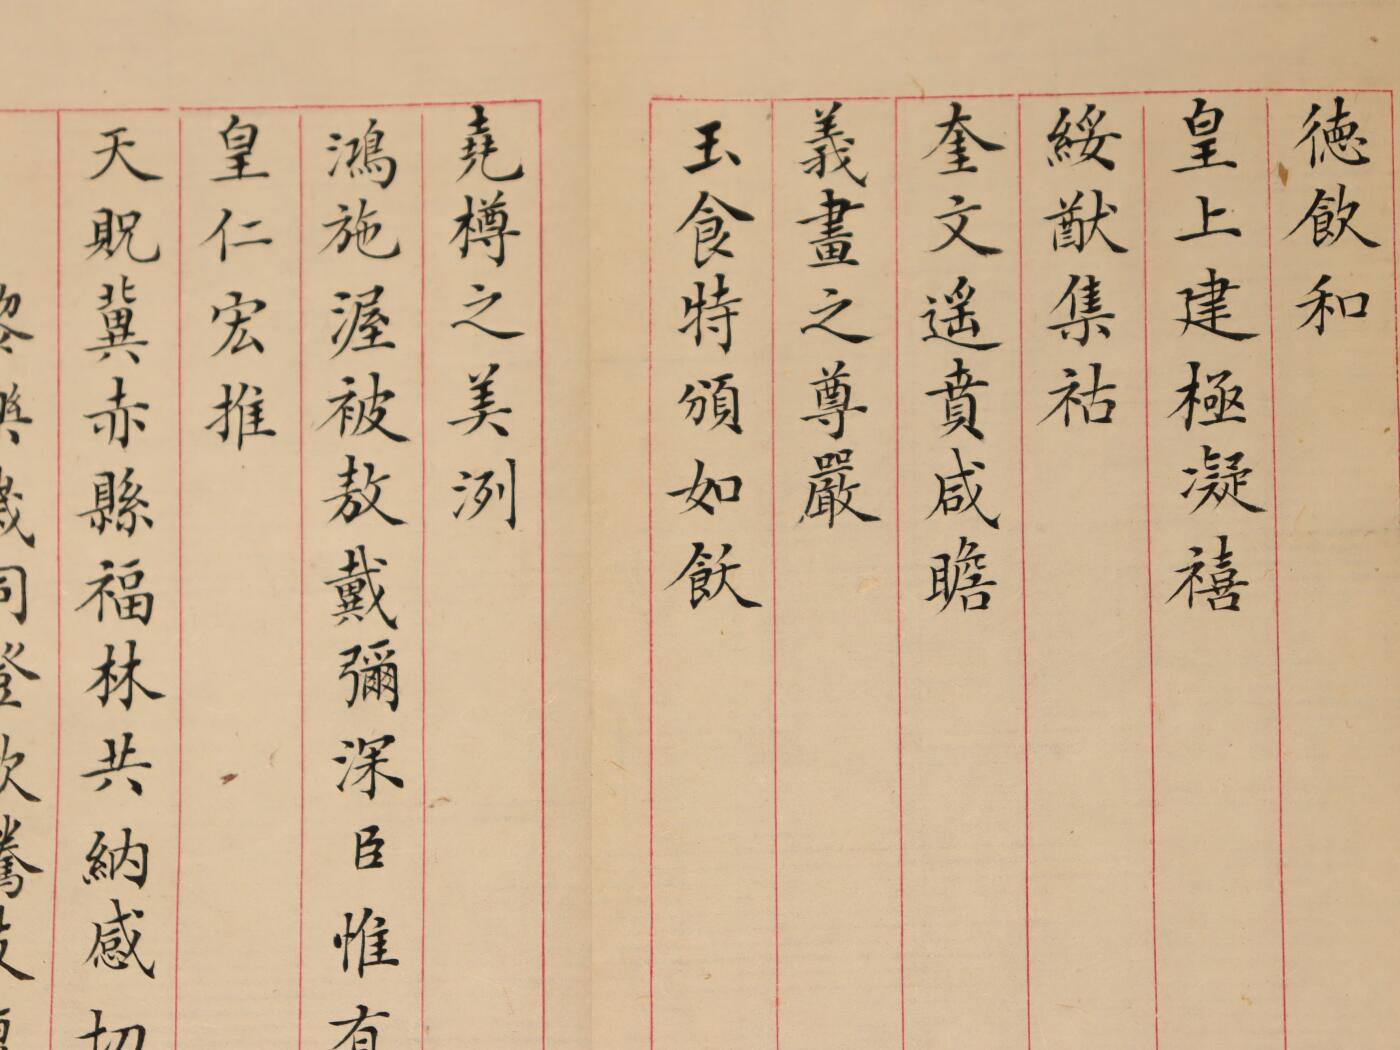 德飲和
皇上建極凝禧
綏猷集祜
奎文遥賁咸瞻
義畫之尊嚴
玉食特頒如飫
堯樽之美洌
鴻施渥被敖戴彌深臣惟有
皇仁宏推
天貺冀赤縣福林共納感切